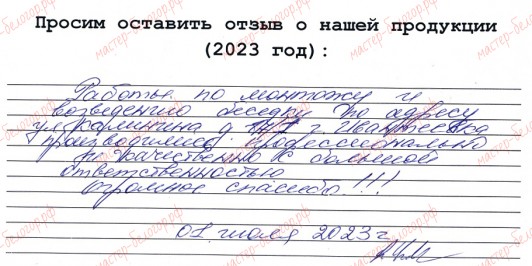 Просим оставить отзыв о нашей продукции
(2023 год):
Работы по монтажу и
возведению беседки по адресу
ул Калинина д г. Ивантеевка
производились профессионально
и качественно с большой
ответственностью
Огромное спасибо!!!
01 июля 2023г
мастер-белогор.рф